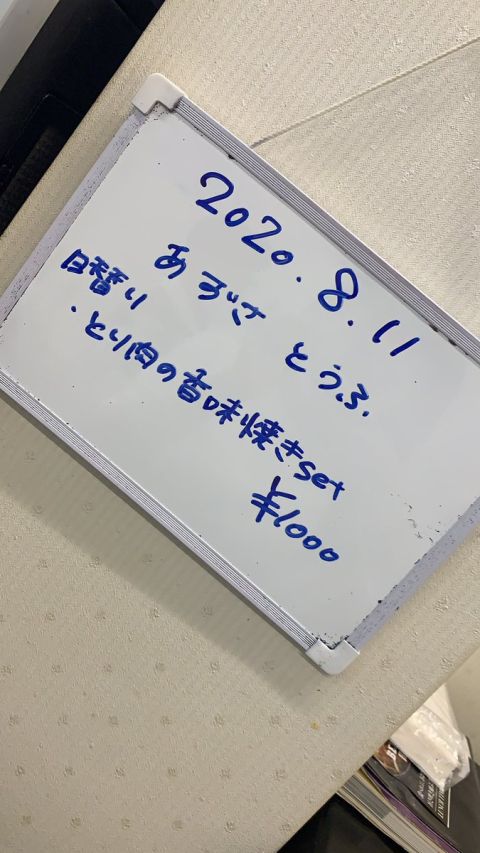 2020.8.11
あずさ とうふ.
日替り
・とり肉の香味焼きset
¥1000